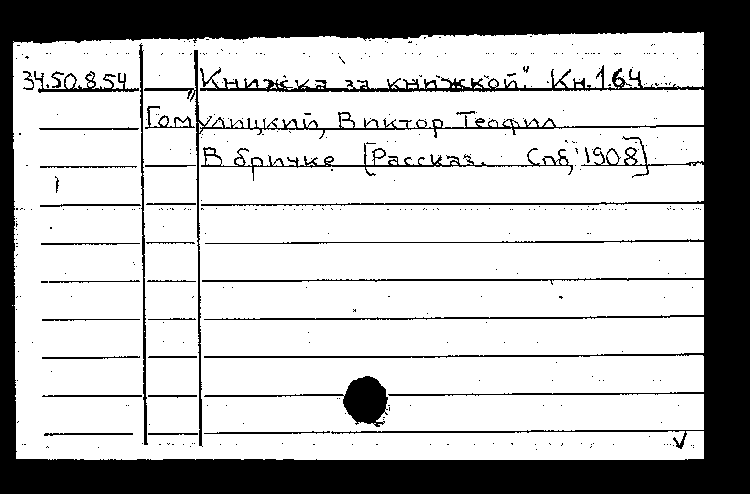 34.50.8.54 „Книжка за книжкой." Кн.164
Гомулицкий, Виктор Теофил
В бричке [Рассказ. Спб, 1908]